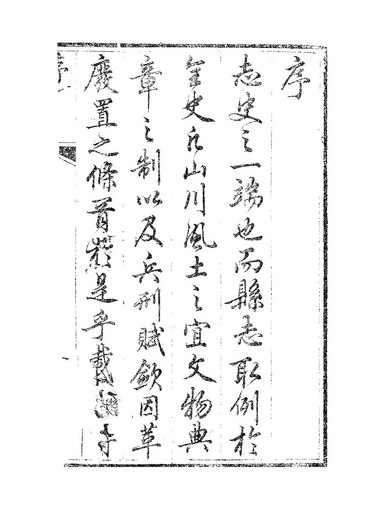 序
志史之一端也而縣志取例於
全史凡山川風土之宜文物典
章之制以及兵刑賦斂因革
廢置之條胥於是乎載
序